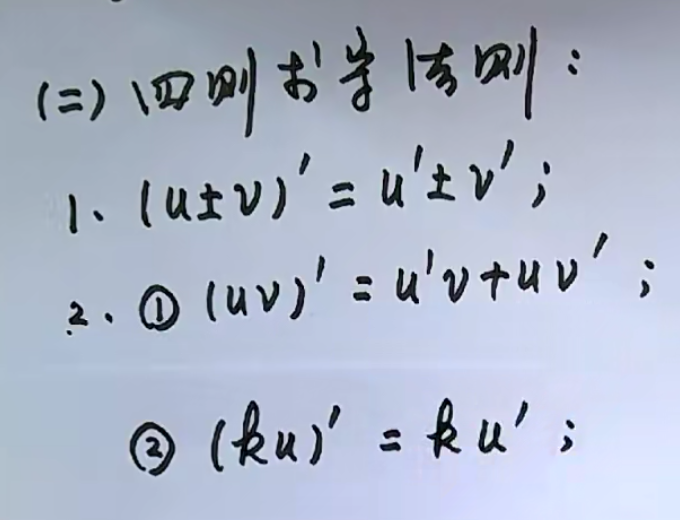 (二) 四则求导法则:
1、(u±v)′ = u′±v′;
2. ① (uv)′ = u′v+uv′;
② (ku)′ = ku′;